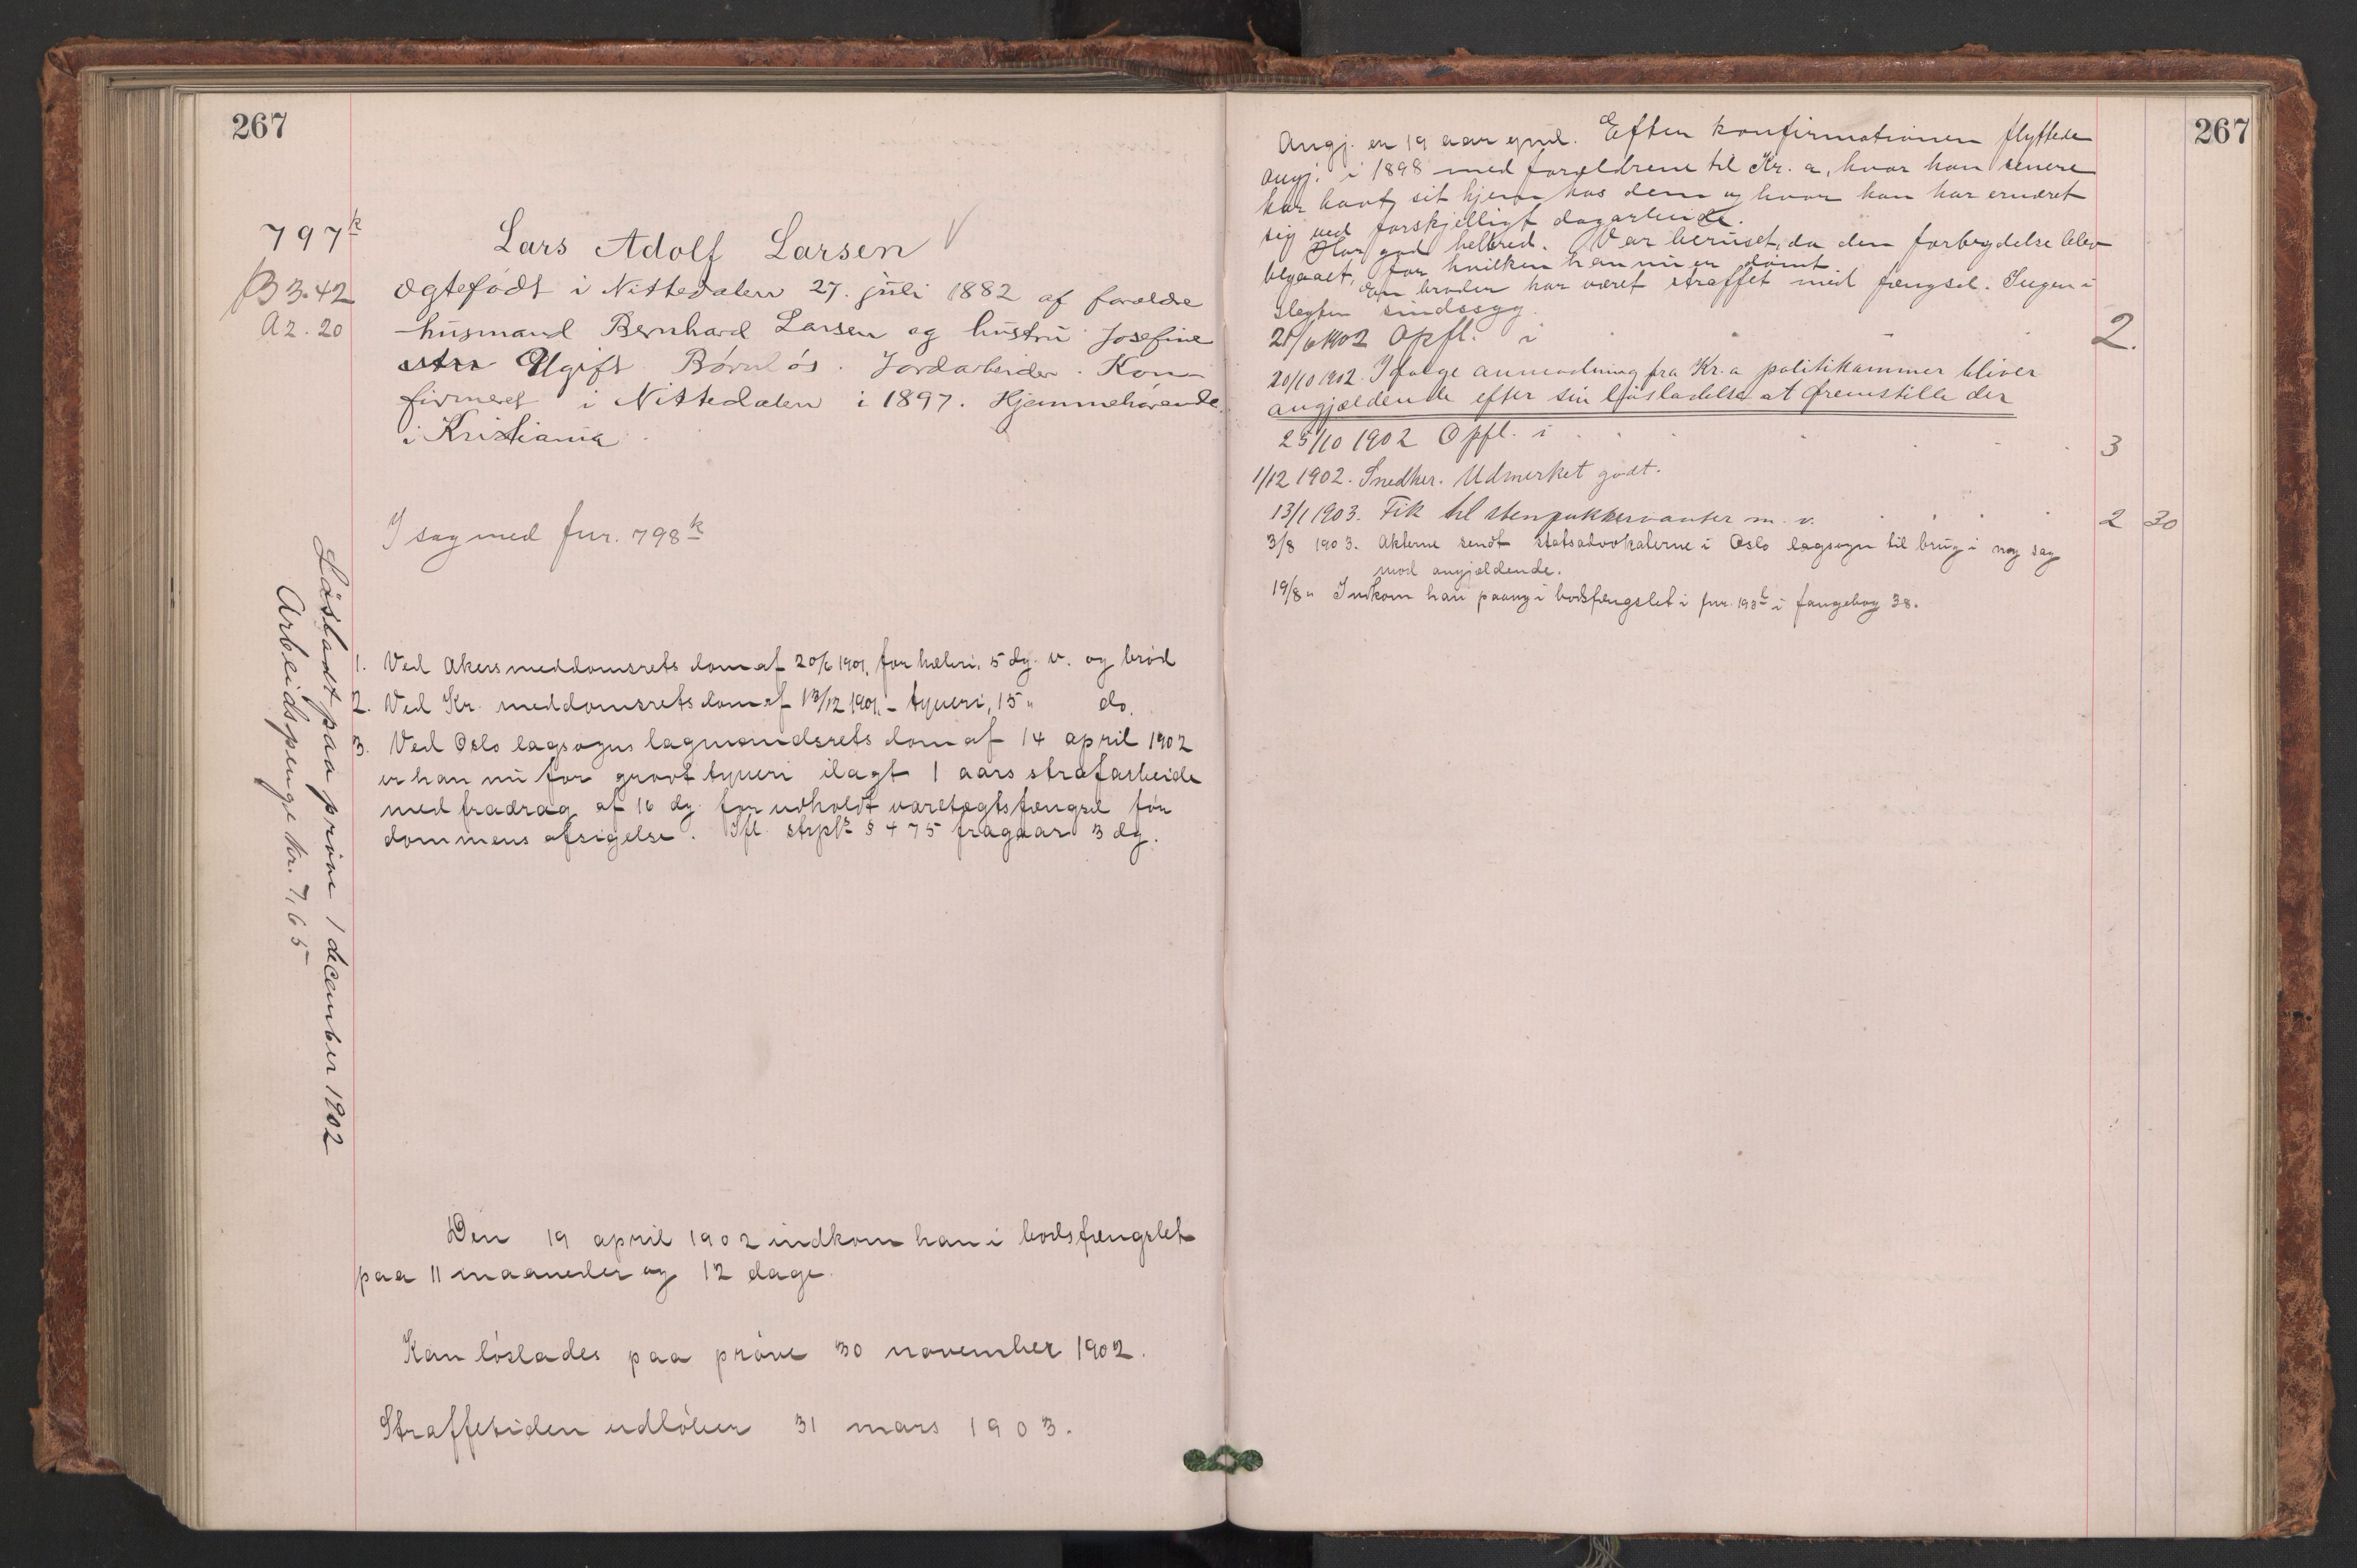 267
797k
B 3.42
A 2. 20
Lars Adolf Larsen V
Ægtefødt i Nittedalen 27. juli 1882 af forældre
husmand Bernhard Larsen og hustru Josefine
Ugift Børnløs. Jordarbeider. Kon-
firmeret i Nittedalen i 1897. Hjemmehørende
i Kristiania.
I sag med fnr. 798k
1. Ved Akers meddomsrets dom af 20/6 1901, for hæleri, 5 dg. v. og brød
2. Ved Kr. meddomsrets dom af 13/12 1901, – tyveri, 15 " do.
3. Ved Oslo lagsogns lagmandsrets dom af 14 april 1902
er han nu for grovt tyveri ilagt 1 aars strafarbeide
med fradrag af 16 dg. for udholdt varetægtsfængsel før
dommens afsigelse. Ifl. strpl. § 475 fragaar 3 dg.
Løsladt paa prøve 1 december 1902
Arbeidspenge kr. 7,65
Den 19 april 1902 indkom han i bodsfængslet
paa 11 maaneder og 12 dage.
Kan løslades paa prøve 30 november 1902.
Straffetiden udløber 31 mars 1903.
267
Angj. er 19 aar gml. Efter konfirmationen flyttede
angj. i 1898 med forældrene til Kr.a, hvor han senere
har havt sit hjem hos dem og hvor han har ernæret
sig ved forskjelligt dagarbeide.
Har god helbred. Var beruset, da den forbrydelse blev
begaaet, for hvilken han nu er dømt.
En broder har været straffet med fængsel. Ingen i
slegten sindssyg.
21/6 1902 Opfl. i 2.
20/10 1902. Ifølge anmodning fra Kr.a politikammer bliver
angjældende efter sin løsladelse at fremstille der
25/10 1902 Opfl. i 3
1/12 1902. Snedker. Udmerket godt.
13/1 1903. Fik til stenpukkervanter m. v. 2 30
3/8 1903. Akterne sendt statsadvokaterne i Oslo lagsogn til brug i ny sag
mod angjældende.
19/8 " Indkom han paany i bodsfængslet i fnr. 193 i fangebog 38.